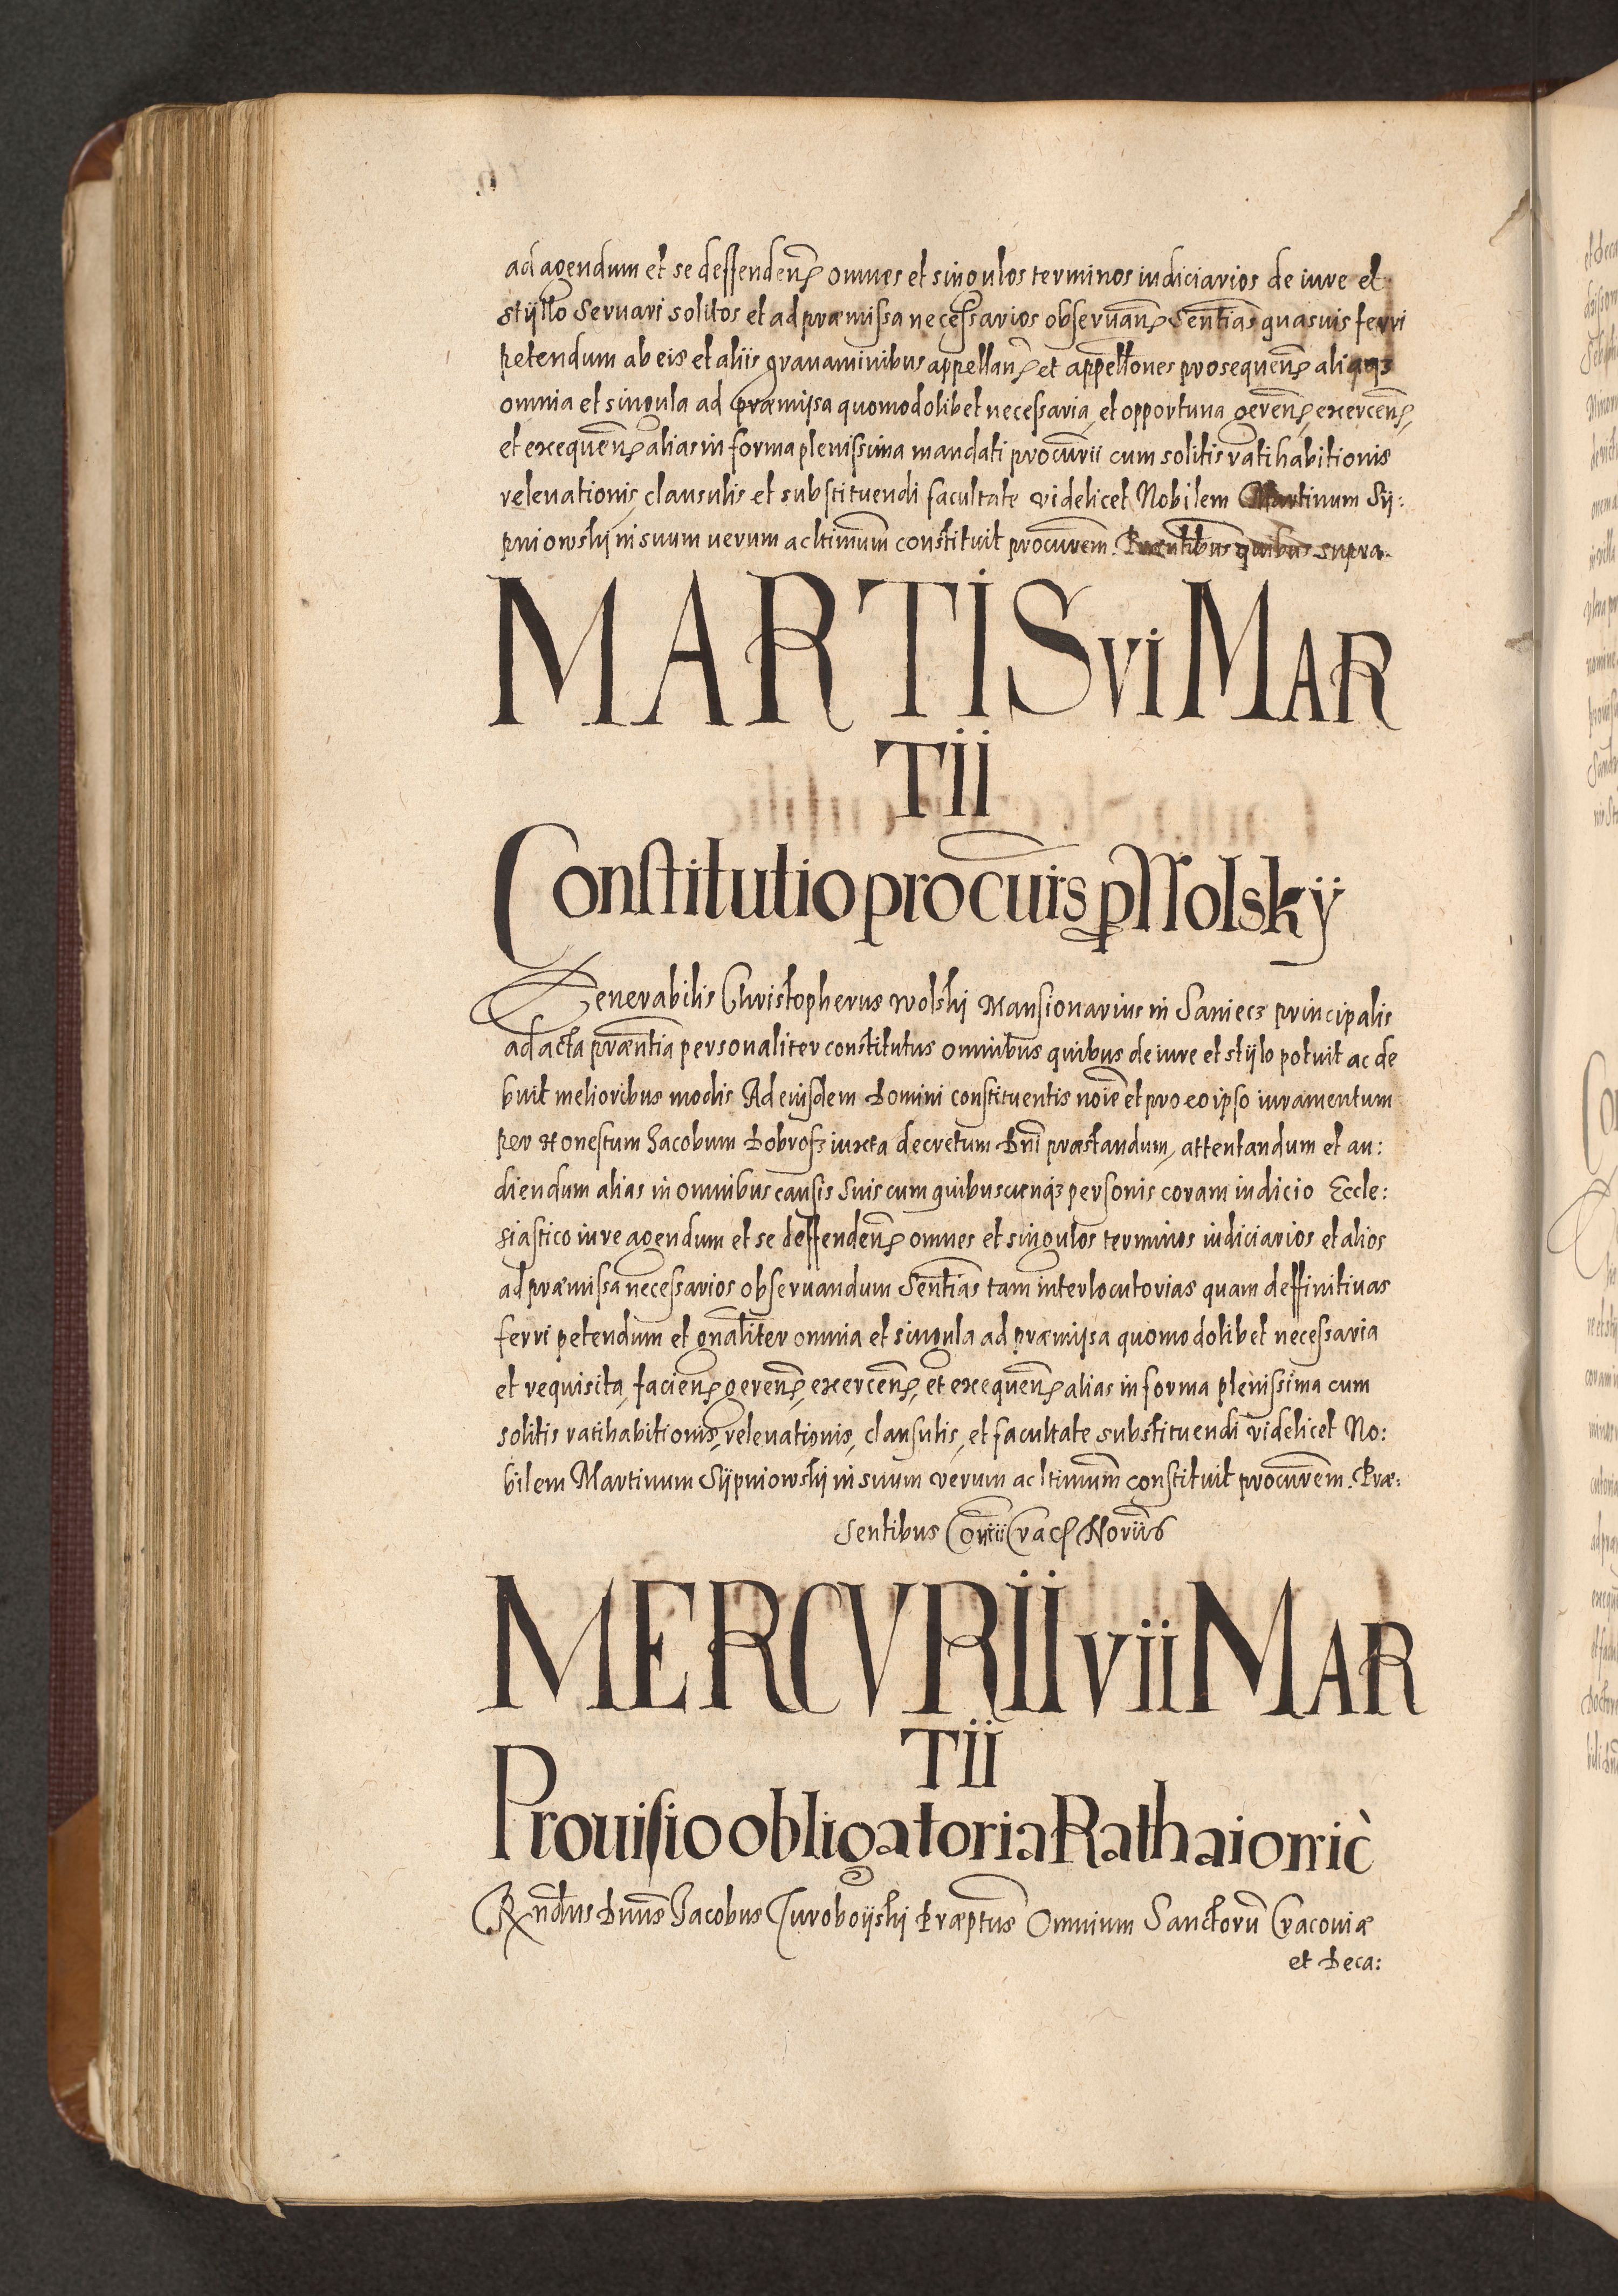 ad agendum et se deffendenꝭ omnes et singulos terminos iudiciarios de iure et
stÿllo seruari solitos et ad præmissa necessarios obseruanꝭ Sentias quasuis ferri
petendum ab eis et aliis grauaminibus appellanꝭ et appellones prosequenꝭ aliaqꝫ
omnia et singula ad præmissa quomodolibet necessaria et opportuna gerenꝭ, exercenꝭ,
et exequenꝭ alias in forma plenissima mandati procurii cum solitis ratihabitionis
releuationis, clausulis et substituendi facultate videlicet Nobilem Martinum Sÿ:
pniowskÿ in suum uerum ac ltimum constituit procurem. Præntibus quibus supra.
MARTIS vi MAR
TII
Constitutio procuris ꝑ Wolskÿ
Venerabilis Christopherus Wolskÿ Mansionarius in Sandecz principalis
ad acta præntia personaliter constitutus omnibus quibus de iure et stÿlo potuit ac de
buit melioribus modis Ad eiusdem Domini constituentis noie et pro eo ipso iuramentum
per Honestum Jacobum Dobrosz iuxta decretum Dni præstandum, attentandum et au:
diendum alias in omnibus causis suis cum quibuscunqꝫ personis coram iudicio Eccle:
siastico iure agendum et se deffendenꝭ omnes et singulos terminos iudiciarios et alios
ad præmissa necessarios obseruandum Sentias tam interlocutorias quam deffinitiuas
ferri petendum et gnaliter omnia et singula ad præmissa quomodolibet necessaria
et requisita, facienꝭ gerenꝭ, exercenꝭ, et exequenꝭ alias in forma plenissima cum
solitis ratihabitionis, releuationis, clausulis, et facultate substituendi videlicet No:
bilem Martinum Sÿpniowskÿ in suum verum ac ltimum constituit procurem. Præ:
sentibus Coriis Cracꝭ Noriis
MERCVRII vii MAR
TII
Prouisio obligatoria Rathaiowic
Rndus Dnus Jacobus Turoboÿskÿ Præptus Omnium Sanctoru Cracouiæ
et Deca: